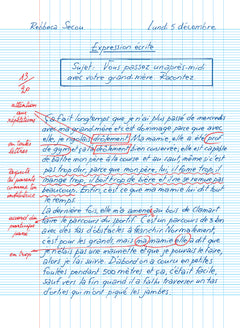 Rebbeca Secou
Lundi 5 décembre
Expression écrite
Sujet: Vous passez un après-midi
avec votre grand mère. Racontez
13
20
attention
aux
répétitions
en toutes
lettres
accord du
participe
passé
en trop
Ça fait longtemps que je n'ai plus passé de mercredis
avec ma grand mère et c'est dommage parce que avec
elle, je rigolais drôlement! Ma mamie, elle a été prof
de gym et ça l'a drôlement bien conservée, elle est capable
de battre mon père à la course et au saut, même si c'est
pas trop dur, parce que mon père, lui, il fume trop, il
mange trop, il boit trop de bière et il ne se remue pas
beaucoup. Enfin, c'est ce que ma mamie lui dit tout
le temps.
La dernière fois, elle m'a amené au bois de Clamart
faire le parcours du sportif. C'est un parcours de 3 km
avec des tas d'obstacles à franchir. Normalement,
c'est pour les grands, mais ma mamie elle a dit que
je n'étais pas une mauviette et que je pourrais le faire,
alors je l'ai suivie. D'abord on a couru en petites
foulées pendant 500 mètres et ça, c'était facile,
sauf vers la fin quand il a fallu traverser un tas
d'orties qui m'ont piqué les jambes.